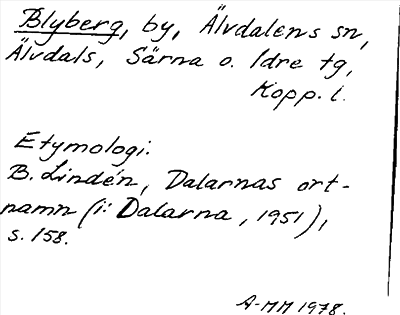 Blyberg, by, Älvdalens sn,
Älvdals, Särna o. Idre tg,
Kopp. l.
Etymologi:
B. Lindén, Dalarnas ort-
namn (i: Dalarna, 1951),
s. 158.
A-MM 1978.